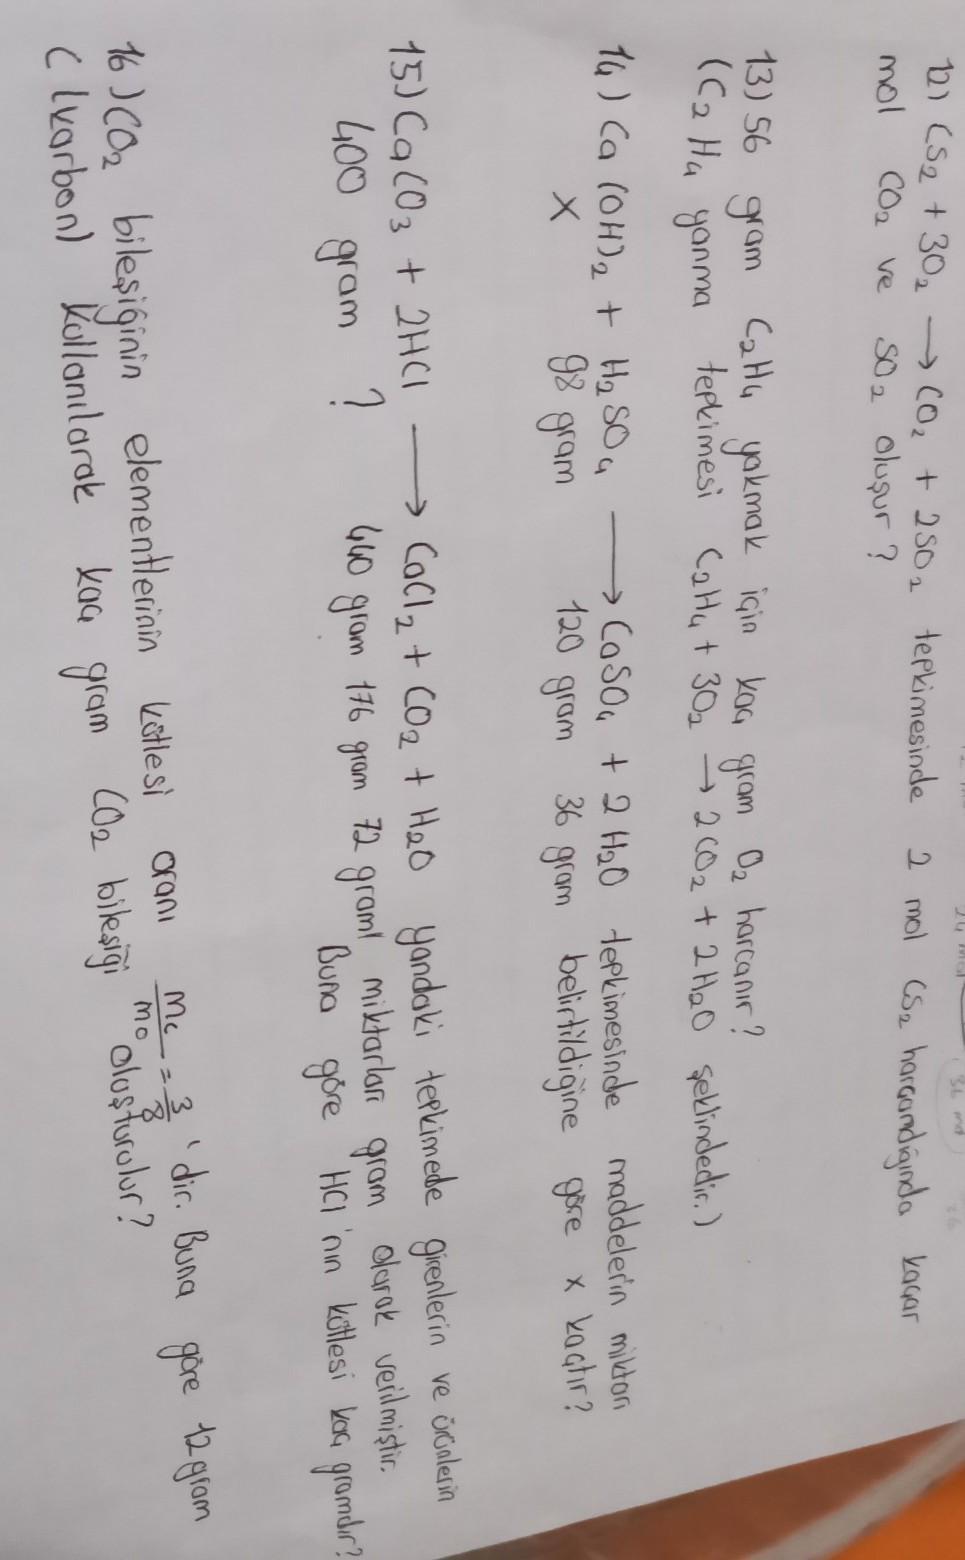 12) CS₂ + 3O₂ → CO₂ + 2SO₂ tepkimesinde 2 mol CS₂ harcandığında kaçar
mol CO₂ ve SO₂ oluşur?
13) 56 gram C₂H₄ yakmak için kaç gram O₂ harcanır?
(C₂H₄ yanma tepkimesi C₂H₄ + 3O₂ → 2CO₂ + 2H₂O şeklindedir.)
14) Ca(OH)₂ + H₂SO₄ → CaSO₄ + 2H₂O tepkimesinde maddelerin miktarı
X 98 gram 120 gram 36 gram belirtildiğine göre x kaçtır?
15) CaCO₃ + 2HCl → CaCl₂ + CO₂ + H₂O yandaki tepkimede girenlerin ve ürünlerin
400 gram ? 440 gram 176 gram 72 gram miktarları gram olarak verilmiştir.
Buna göre HCl'nin kütlesi kaç gramdır?
16) CO₂ bileşiğinin elementlerinin kütlesi oranı mc/mo = 3/8 'dir. Buna göre 12 gram
C (karbon) kullanılarak kaç gram CO₂ bileşiği oluşturulur?